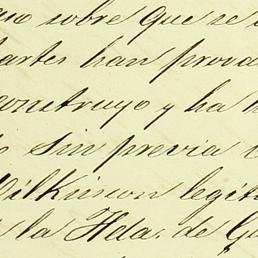 sobre que se
partes han prova
construyo y ha
sin previa
Wilkinson legít
la Hda. de G